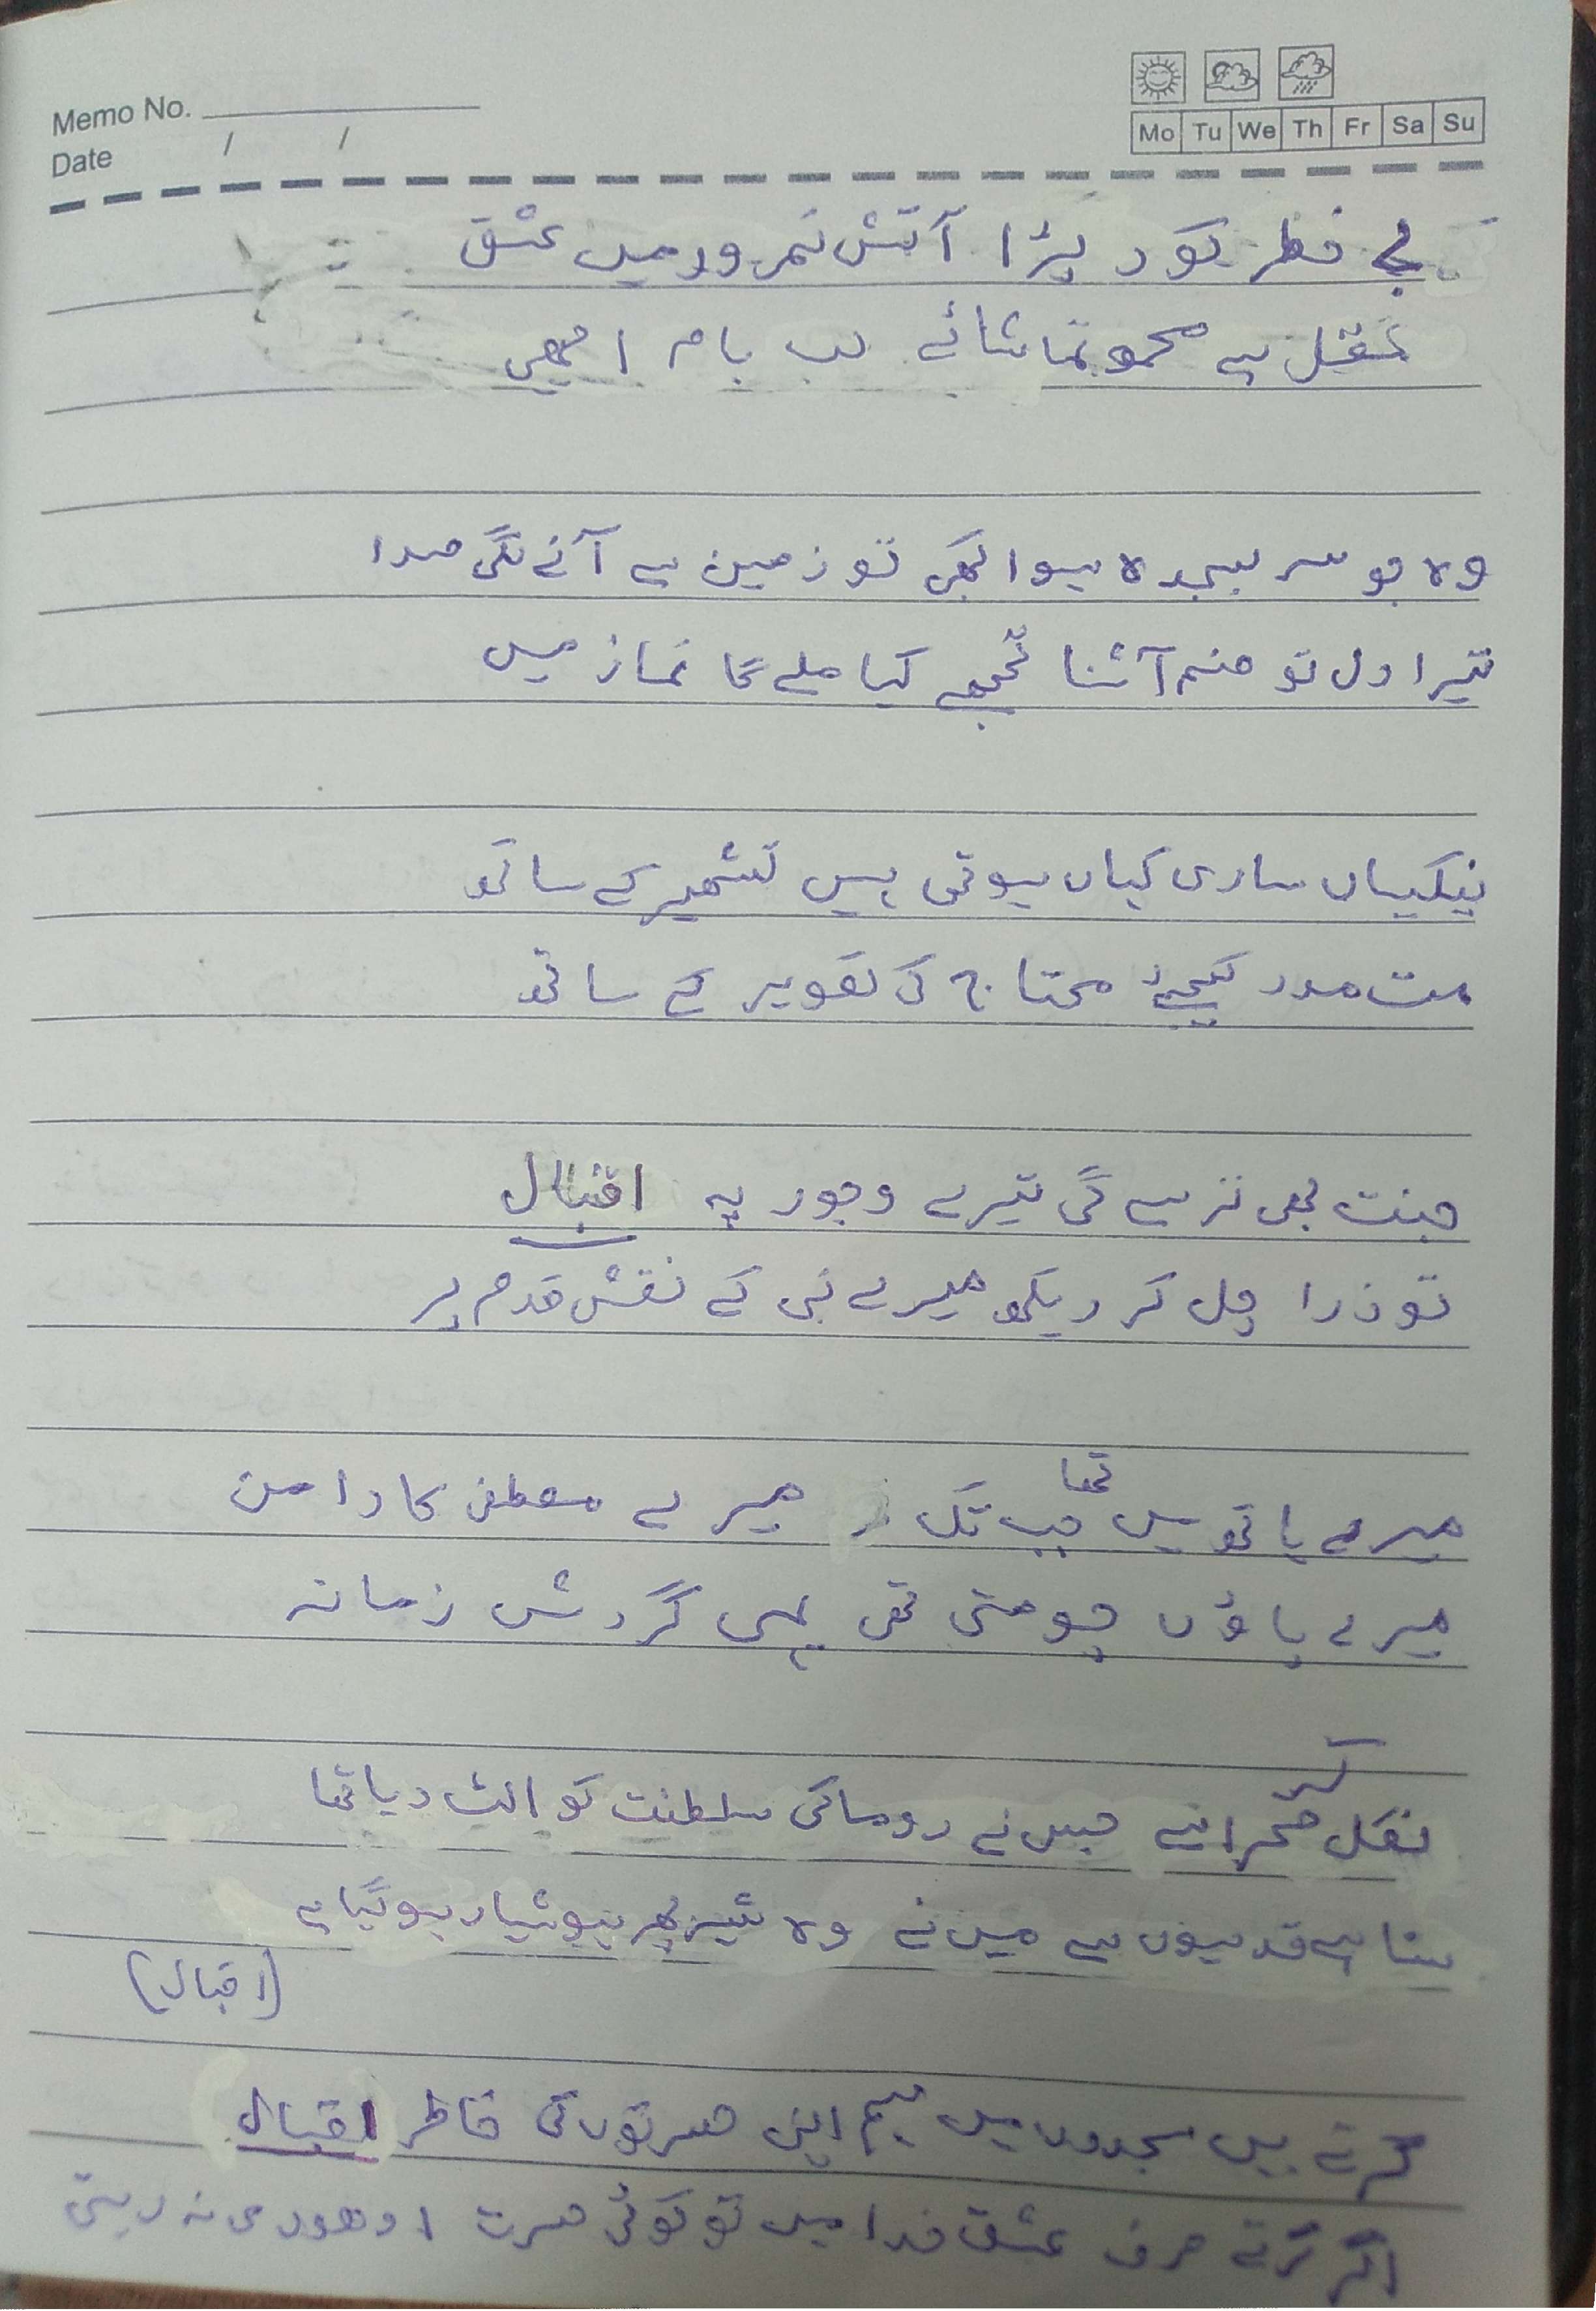 Memo No.
Date / /
Mo Tu We Th Fr Sa Su
بے خطر کود پڑا آتش نمرود میں عشق
عقل ہے محو تماشائے لب بام ابھی
وہ جو سر بسجدہ ہوا کبھی تو زمین سے آنے لگی صدا
تیرا دل تو صنم آشنا تجھے کیا ملے گا نماز میں
نیکیاں ساری کہاں ہوتی ہیں تشہیر کے ساتھ
مت مدد کیجئے محتاج کی تصویر کے ساتھ
جنت بھی ترسے گی تیرے وجود پہ اقبال
تو ذرا چل کر دیکھ میرے نبی کے نقش قدم پر
میرے ہاتھ میں جب تک تھا میرے مصطفی کا دامن
میرے پاؤں چومتی تھی یہی گردش زمانہ
نکل کر صحرا سے جس نے روما کی سلطنت کو الٹ دیا تھا
سنا ہے قدسیوں سے میں نے وہ شیر پھر ہوشیار ہو گیا ہے
(اقبال)
گرتے ہیں سجدوں میں ہم اپنی حسرتوں کی خاطر اقبال
اگر گرتے صرف عشق خدا میں تو کوئی حسرت ادھوری نہ رہتی